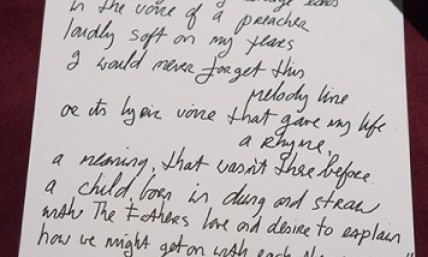 in the voice of a preacher
loudly soft on my tears
I would never forget this
melody line
or its lyric voice that gave my life
a Rhyme,
a meaning, that wasn't there before.
a child, born in dung and straw
with The Fathers love and desire to explain
how we might get on with each